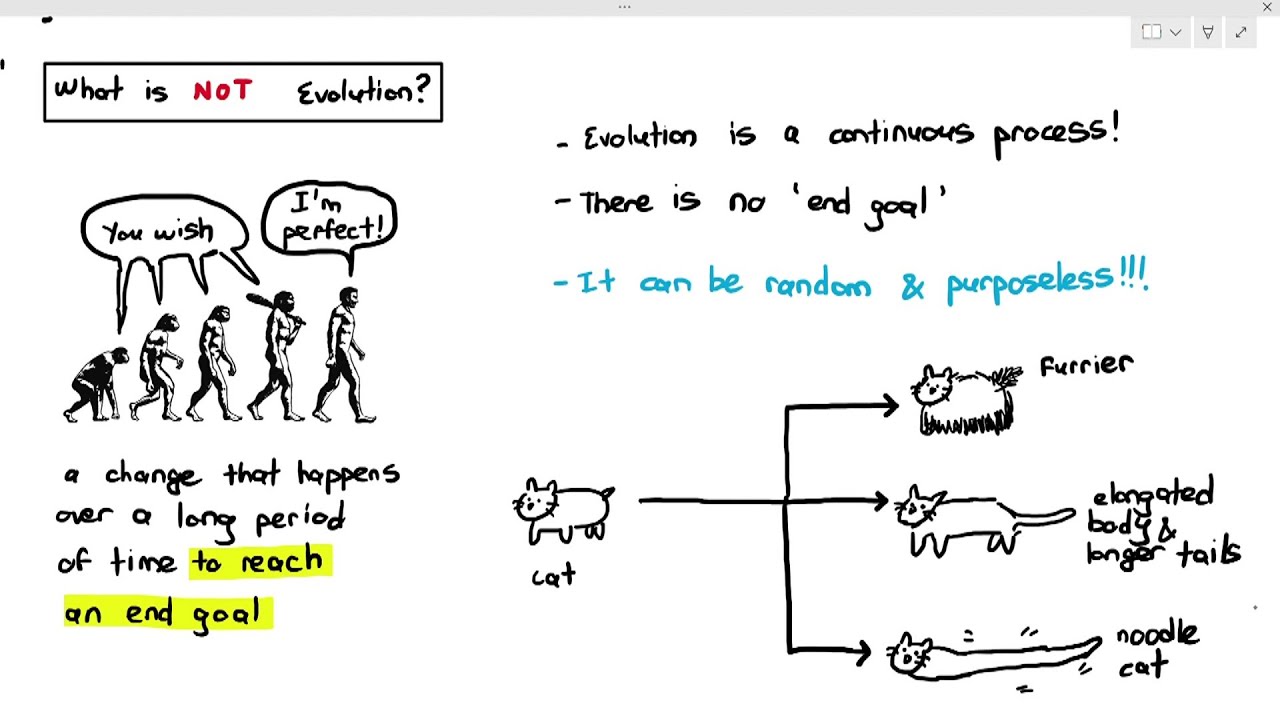 What is NOT Evolution?
You wish
I'm
perfect!
a change that happens
over a long period
of time to reach
an end goal
- Evolution is a continuous process!
- There is no 'end goal'
- It can be random & purposeless!!!
cat
Furrier
elongated
body &
longer tails
noodle
cat